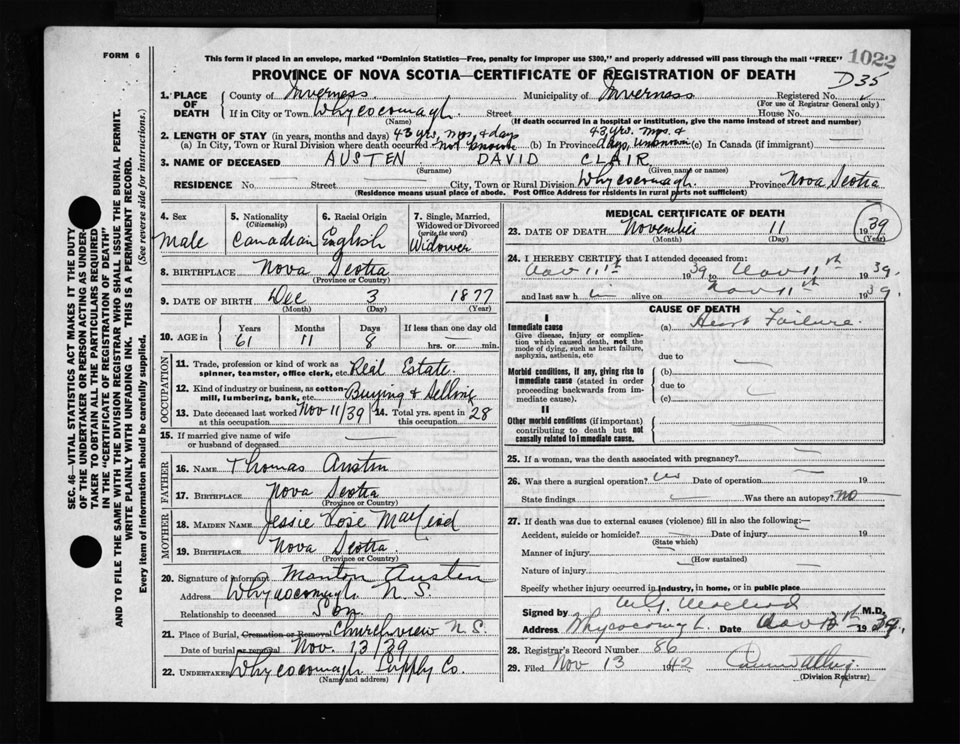 FORM 6
This form if placed in an envelope, marked "Dominion Statistics—Free, penalty for improper use $300," and properly addressed will pass through the mail "FREE"
1022
PROVINCE OF NOVA SCOTIA—CERTIFICATE OF REGISTRATION OF DEATH
D35
1. PLACE OF DEATH
County of Inverness Municipality of Inverness Registered No.
(For use of Registrar General only)
If in City or Town Whycocomagh Street House No.
(Name) (If death occurred in a hospital or institution, give the name instead of street and number)
2. LENGTH OF STAY (in years, months and days) 43 yrs, mos, & days 43 yrs. mos. &
(a) In City, Town or Rural Division where death occurred not known (b) In Province days, unknown (c) In Canada (if immigrant)
3. NAME OF DECEASED AUSTEN DAVID CLAIR
(Surname) (Given name or names)
RESIDENCE No. Street City, Town or Rural Division Whycocomagh Province Nova Scotia
(Residence means usual place of abode. Post Office Address for residents in rural parts not sufficient)
SEC. 46—VITAL STATISTICS ACT MAKES IT THE DUTY
OF THE UNDERTAKER OR PERSON ACTING AS UNDER-
TAKER TO OBTAIN ALL THE PARTICULARS REQUIRED
IN THE "CERTIFICATE OF REGISTRATION OF DEATH"
AND TO FILE THE SAME WITH THE DIVISION REGISTRAR WHO SHALL ISSUE THE BURIAL PERMIT.
WRITE PLAINLY WITH UNFADING INK. THIS IS A PERMANENT RECORD.
Every item of information should be carefully supplied. (See reverse side for instructions.)
4. Sex
Male
5. Nationality
(Citizenship)
Canadian
6. Racial Origin
English
7. Single, Married,
Widowed or Divorced
(write the word)
Widower
8. BIRTHPLACE Nova Scotia
(Province or Country)
9. DATE OF BIRTH Dec 3 1877
(Month) (Day) (Year)
10. AGE in
Years Months Days If less than one day old
61 11 8 hrs. or min.
OCCUPATION
11. Trade, profession or kind of work as
spinner, teamster, office clerk, etc. Real Estate.
12. Kind of industry or business, as cotton-
mill, lumbering, bank, etc. Buying & Selling
13. Date deceased last worked at this occupation Nov 11/39 14. Total yrs. spent in this occupation 28
15. If married give name of wife
or husband of deceased
FATHER
16. NAME Thomas Austin
17. BIRTHPLACE Nova Scotia
(Province or Country)
MOTHER
18. MAIDEN NAME Jessie Rose MacLeod
19. BIRTHPLACE Nova Scotia.
(Province or Country)
20. Signature of informant Manton Austen
Address Whycocomagh N.S.
Relationship to deceased Son
21. Place of Burial, Cremation or Removal Churchview N.S.
Date of burial or removal Nov. 13/39
22. UNDERTAKER Whycocomagh Supply Co.
(Name and address)
MEDICAL CERTIFICATE OF DEATH
23. DATE OF DEATH November 11 1939
(Month) (Day) (Year)
24. I HEREBY CERTIFY that I attended deceased from:
Nov 11th 1939 to Nov 11th 1939.
and last saw him alive on Nov 11th 1939.
CAUSE OF DEATH
I
Immediate cause (a) Heart Failure.
Give disease, injury or complica-
tion which caused death, not the
mode of dying, such as heart failure,
asphyxia, asthenia, etc
due to
Morbid conditions, if any, giving rise to
immediate cause (stated in order
proceeding backwards from im-
mediate cause).
(b)
due to
(c)
II
Other morbid conditions (if important)
contributing to death but not
causally related to immediate cause.
25. If a woman, was the death associated with pregnancy?
26. Was there a surgical operation? no Date of operation 19
State findings Was there an autopsy? no
27. If death was due to external causes (violence) fill in also the following:
Accident, suicide or homicide? Date of injury 19
(State which)
Manner of injury
(How sustained)
Nature of injury
Specify whether injury occurred in industry, in home, or in public place
Signed by MacLeod M.D.
Address Whycocomagh. Date Nov 1939.
28. Registrar's Record Number 86
29. Filed Nov 13 1942
(Division Registrar)